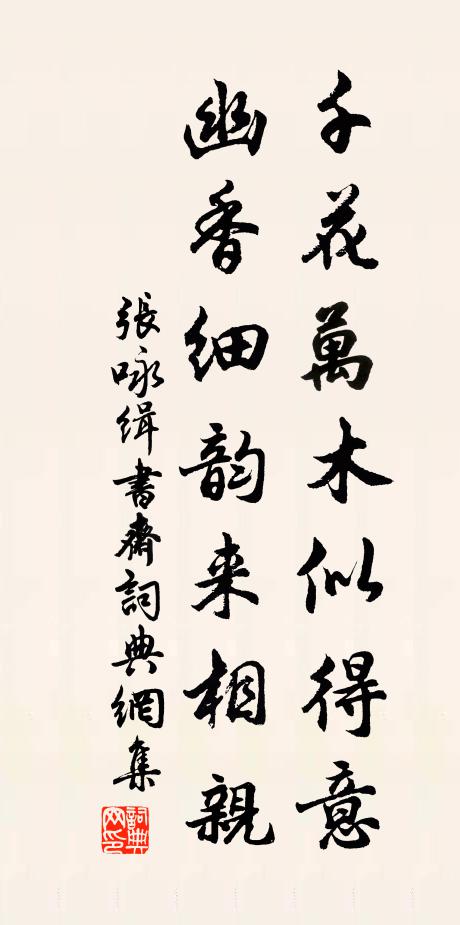 千花萬木似得意
幽香细韵来相親
張咏缉書齋詞典網集
詞典网印